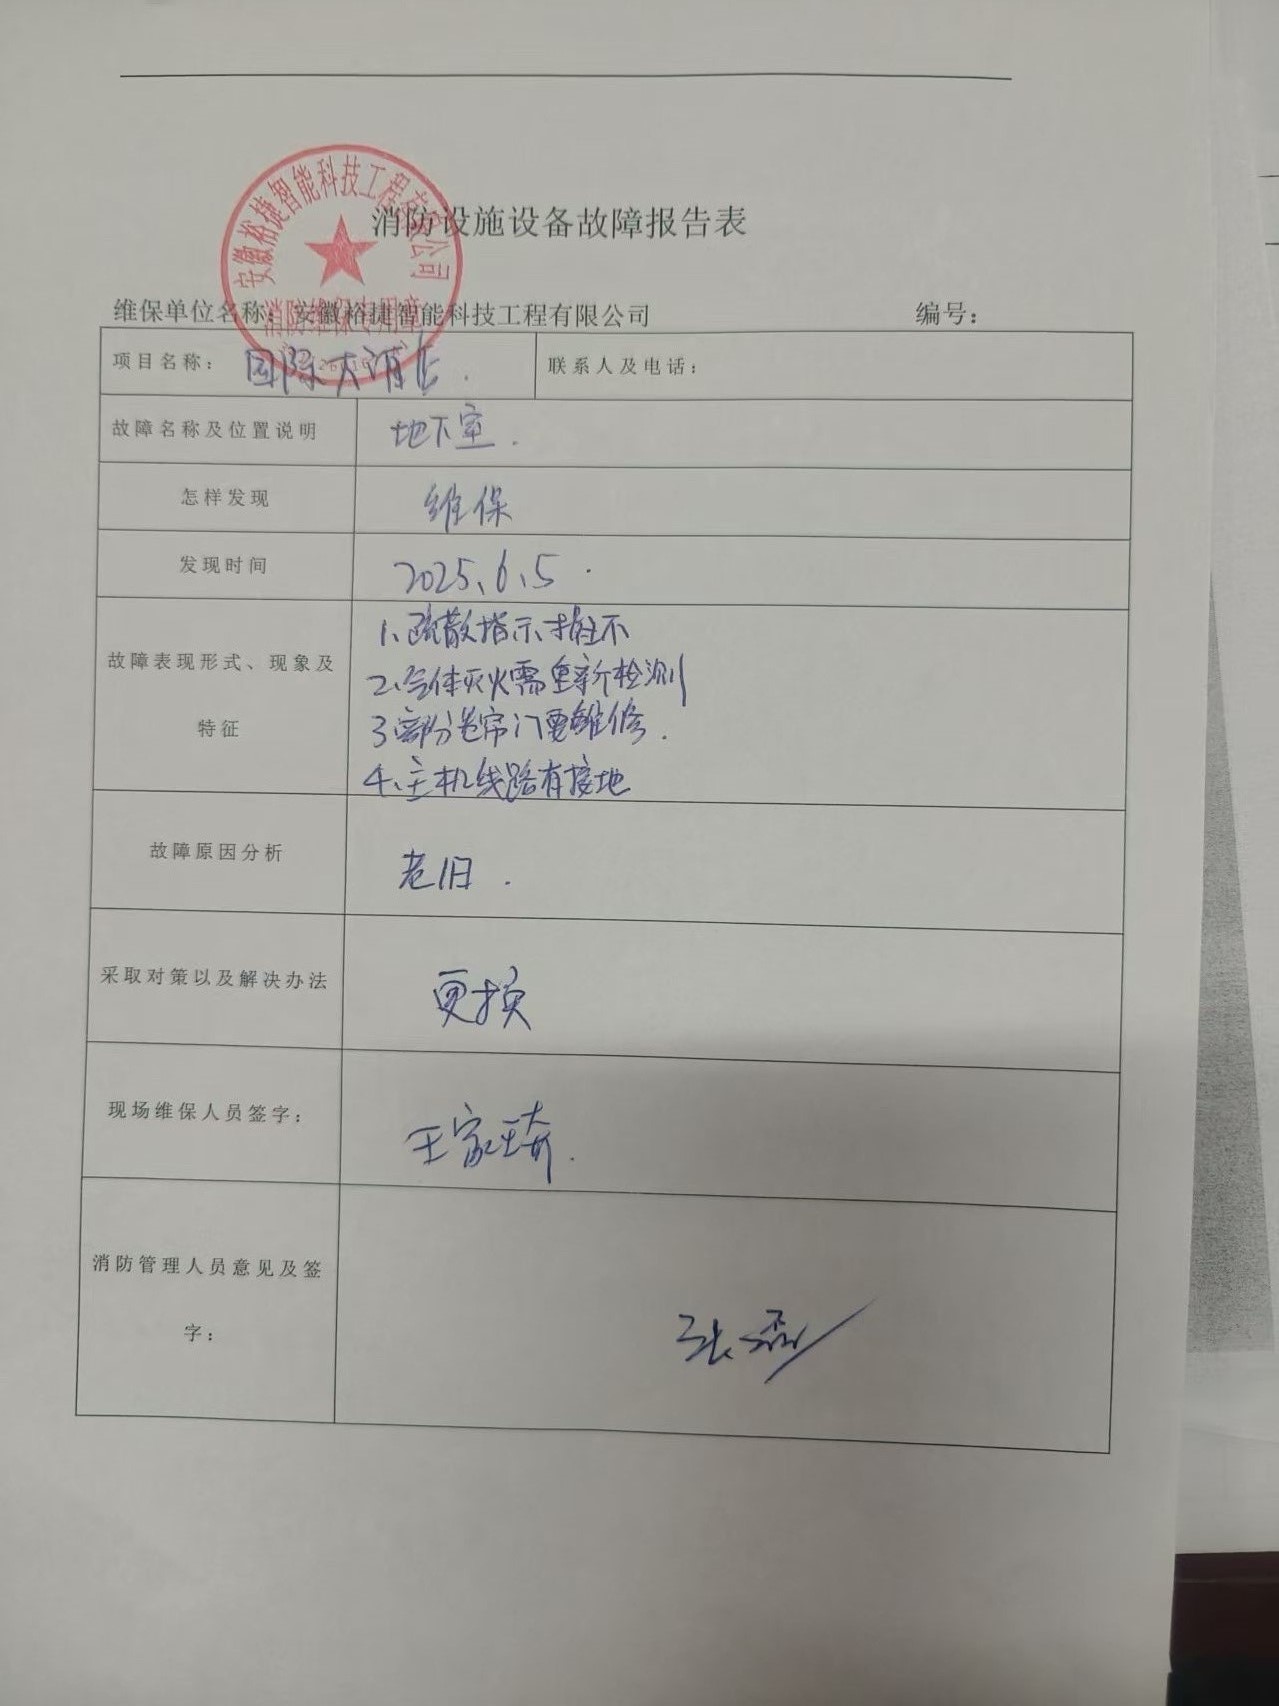 安徽裕捷智能科技工程有限公司
消防维保专用章
消防设施设备故障报告表
维保单位名称：安徽裕捷智能科技工程有限公司 编号：
项目名称： 国际大酒店. 联系人及电话：
故障名称及位置说明 地下室.
怎样发现 维保
发现时间 2025、6、5.
故障表现形式、现象及
特征
1、疏散指示 不
2、气体灭火需重新检测
3 部分卷帘门要维修.
4、主机线路有接地
故障原因分析 老旧.
采取对策以及解决办法 更损
现场维保人员签字： 王家琦.
消防管理人员意见及签
字：
张磊